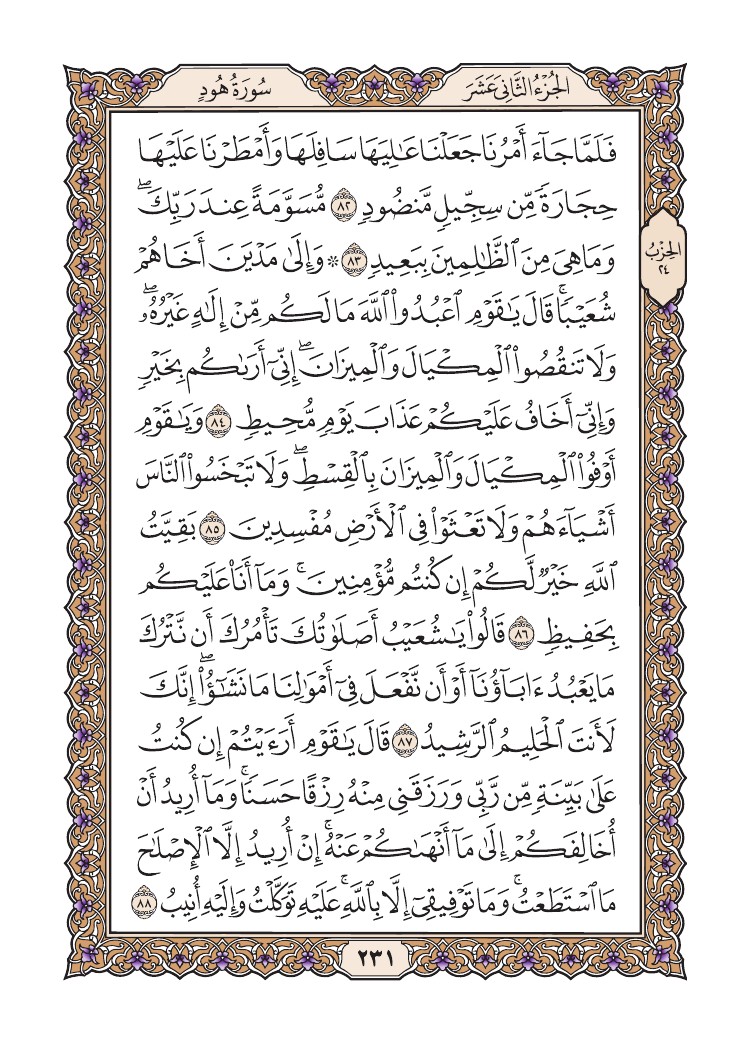 الجُزْءُ الثَّانِيَ عَشَرَ
سُورَةُ هُودٍ
فَلَمَّا جَآءَ أَمْرُنَا جَعَلْنَا عَٰلِيَهَا سَافِلَهَا وَأَمْطَرْنَا عَلَيْهَا
حِجَارَةً مِّن سِجِّيلٍ مَّنضُودٍ ٨٢ مُّسَوَّمَةً عِندَ رَبِّكَۖ
وَمَا هِيَ مِنَ ٱلظَّٰلِمِينَ بِبَعِيدٍ ٨٣ ۞ وَإِلَىٰ مَدْيَنَ أَخَاهُمْ
الحِزْبُ
٢٤
شُعَيْبًاۚ قَالَ يَٰقَوْمِ ٱعْبُدُوا۟ ٱللَّهَ مَا لَكُم مِّنْ إِلَٰهٍ غَيْرُهُۥۖ
وَلَا تَنقُصُوا۟ ٱلْمِكْيَالَ وَٱلْمِيزَانَۖ إِنِّىٓ أَرَىٰكُم بِخَيْرٍ
وَإِنِّىٓ أَخَافُ عَلَيْكُمْ عَذَابَ يَوْمٍ مُّحِيطٍ ٨٤ وَيَٰقَوْمِ
أَوْفُوا۟ ٱلْمِكْيَالَ وَٱلْمِيزَانَ بِٱلْقِسْطِۖ وَلَا تَبْخَسُوا۟ ٱلنَّاسَ
أَشْيَآءَهُمْ وَلَا تَعْثَوْا۟ فِى ٱلْأَرْضِ مُفْسِدِينَ ٨٥ بَقِيَّتُ
ٱللَّهِ خَيْرٌ لَّكُمْ إِن كُنتُم مُّؤْمِنِينَۚ وَمَآ أَنَا۠ عَلَيْكُم
بِحَفِيظٍ ٨٦ قَالُوا۟ يَٰشُعَيْبُ أَصَلَوٰتُكَ تَأْمُرُكَ أَن نَّتْرُكَ
مَا يَعْبُدُ ءَابَآؤُنَآ أَوْ أَن نَّفْعَلَ فِىٓ أَمْوَٰلِنَا مَا نَشَٰٓؤُا۟ۖ إِنَّكَ
لَأَنتَ ٱلْحَلِيمُ ٱلرَّشِيدُ ٨٧ قَالَ يَٰقَوْمِ أَرَءَيْتُمْ إِن كُنتُ
عَلَىٰ بَيِّنَةٍ مِّن رَّبِّى وَرَزَقَنِى مِنْهُ رِزْقًا حَسَنًاۚ وَمَآ أُرِيدُ أَنْ
أُخَالِفَكُمْ إِلَىٰ مَآ أَنْهَىٰكُمْ عَنْهُۚ إِنْ أُرِيدُ إِلَّا ٱلْإِصْلَٰحَ
مَا ٱسْتَطَعْتُۚ وَمَا تَوْفِيقِىٓ إِلَّا بِٱللَّهِۚ عَلَيْهِ تَوَكَّلْتُ وَإِلَيْهِ أُنِيبُ ٨٨
٢٣١